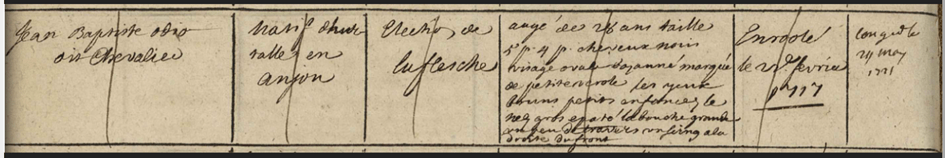 Jean Baptiste odio
dit Chevalier
natif dhui
salles en
anjou
Election de
la flesche
augé de 28 ans taille
5 p. 4 p. cheveux noirs
visage ovale bazanné marqué
de petite verole les yeux
bruns petits enfoncez le
nez gros epaté la bouche grande
un peu de travers un seing a la
droite du front
Enrolé
le fevrier
1717
Congedié le
24 may
1721